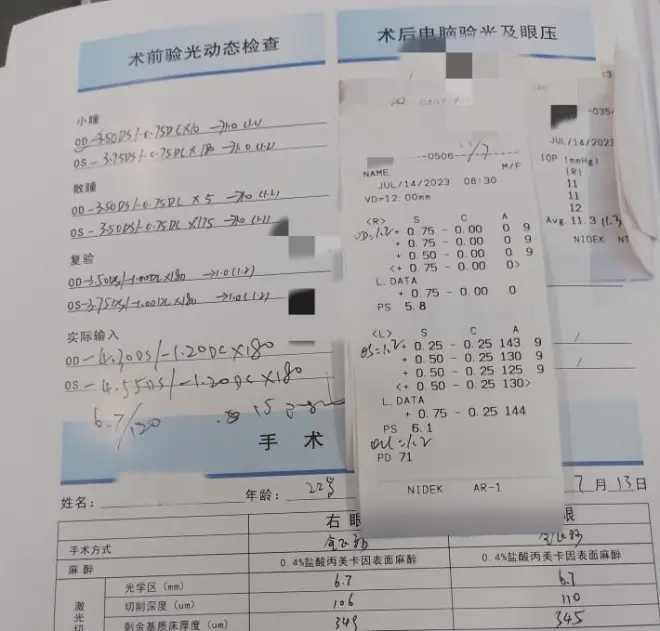 术前验光动态检查
术后电脑验光及眼压
小瞳
OD -3.50DS/-0.75DC×10 →1.0 (1.2)
OS -3.75DS/-0.75DC×180 →1.0 (1.2)
散瞳
OD -3.50DS/-0.75DC×5 →1.0 (1.2)
OS -3.50DS/-0.75DC×175 →1.0 (1.2)
复验
OD -3.50DS/-1.00DC×180 →1.0 (1.2)
OS -3.75DS/-1.00DC×180 →1.0 (1.2)
实际输入
OD -4.30DS/-1.20DC×180
OS -4.55DS/-1.20DC×180
6.7/120
-0506
NAME M/F
JUL/14/2023 08:30
VD=12.00mm
<R> S C A
OD=1.2 + 0.75 - 0.00 0 9
+ 0.75 - 0.00 0 9
+ 0.50 - 0.00 0 9
<+ 0.75 - 0.00 0>
L.DATA
+ 0.75 - 0.00 0
PS 5.8
<L> S C A
OS=1.2 + 0.25 - 0.25 143 9
+ 0.50 - 0.25 130 9
+ 0.50 - 0.25 125 9
<+ 0.50 - 0.25 130>
L.DATA
+ 0.75 - 0.25 144
PS 6.1
OU=1.2
PD 71
NIDEK AR-1
-035/
JUL/14/2023
IOP (mmHg)
(R)
11
11
12
Avg. 11.3
NIDEK NT
手术
姓名: 年龄: 22岁 7月13日
右眼 眼
手术方式 全飞秒 全飞秒
麻醉 0.4%盐酸丙美卡因表面麻醉 0.4%盐酸丙美卡因表面麻醉
激光切
光学区 (mm) 6.7 6.7
切削深度 (um) 106 110
剩余基质床厚度 (um) 349 345